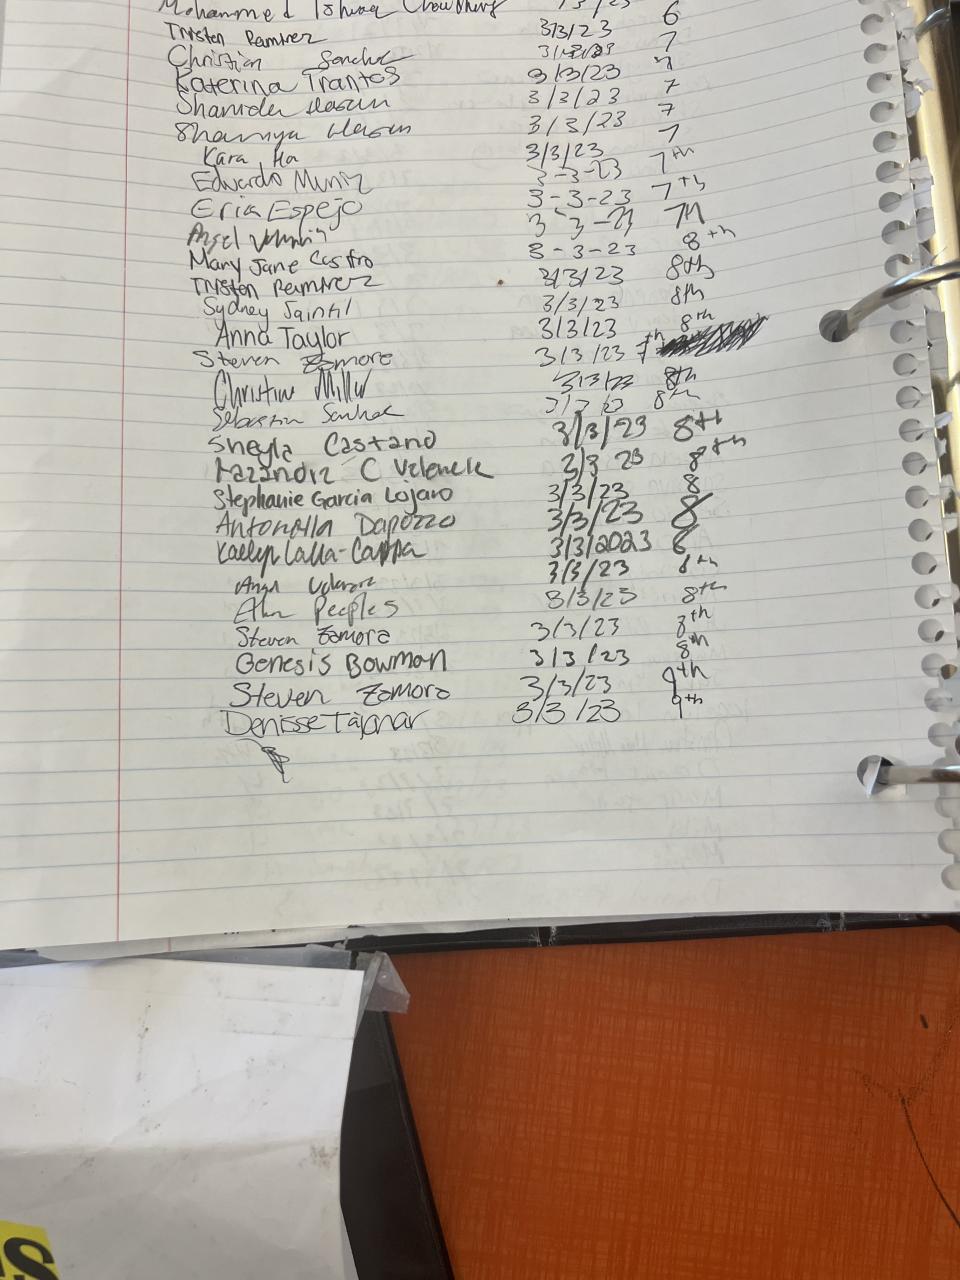 Mohammed Ishraq Chowdhury 3/3/23 6
Tristen Ramirez 3/3/23 7
Christian Sanchez 3/3/23 7
Katerina Trantos 3/3/23 7
Shamida Hasan 3/3/23 7
Shamiya Hasan 3/3/23 7
Kara Ha 3/3/23
Eduardo Muniz 3-3-23 7th
Eria Espejo 3-3-23 7th
Angel 3-3-23 7th
Mary Jane Castro 3-3-23 8th
Tristen Ramirez 3/3/23 8th
Sydney Saintil 3/3/23 8th
Anna Taylor 3/3/23 8th
Steven Zamora 3/3/23 7th
Christine Miller 3/3/23 8th
Sebastian Sanchez 3/3/23 8th
Sheyla Castano 3/3/23 8th
C Valencia 3/3 23 8th
Stephanie Garcia Lojano 3/3/23 8
Antonella Dapozzo 3/3/23 8
Kaelyn Lalla-Cappa 3/3/2023 8
Angel 3/3/23 8th
Peeples 3/3/23 8th
Steven Zamora 3/3/23 8th
Genesis Bowman 3/3/23 8th
Steven Zamora 3/3/23 9th
Denisse Tajonar 3/3/23 9th
S